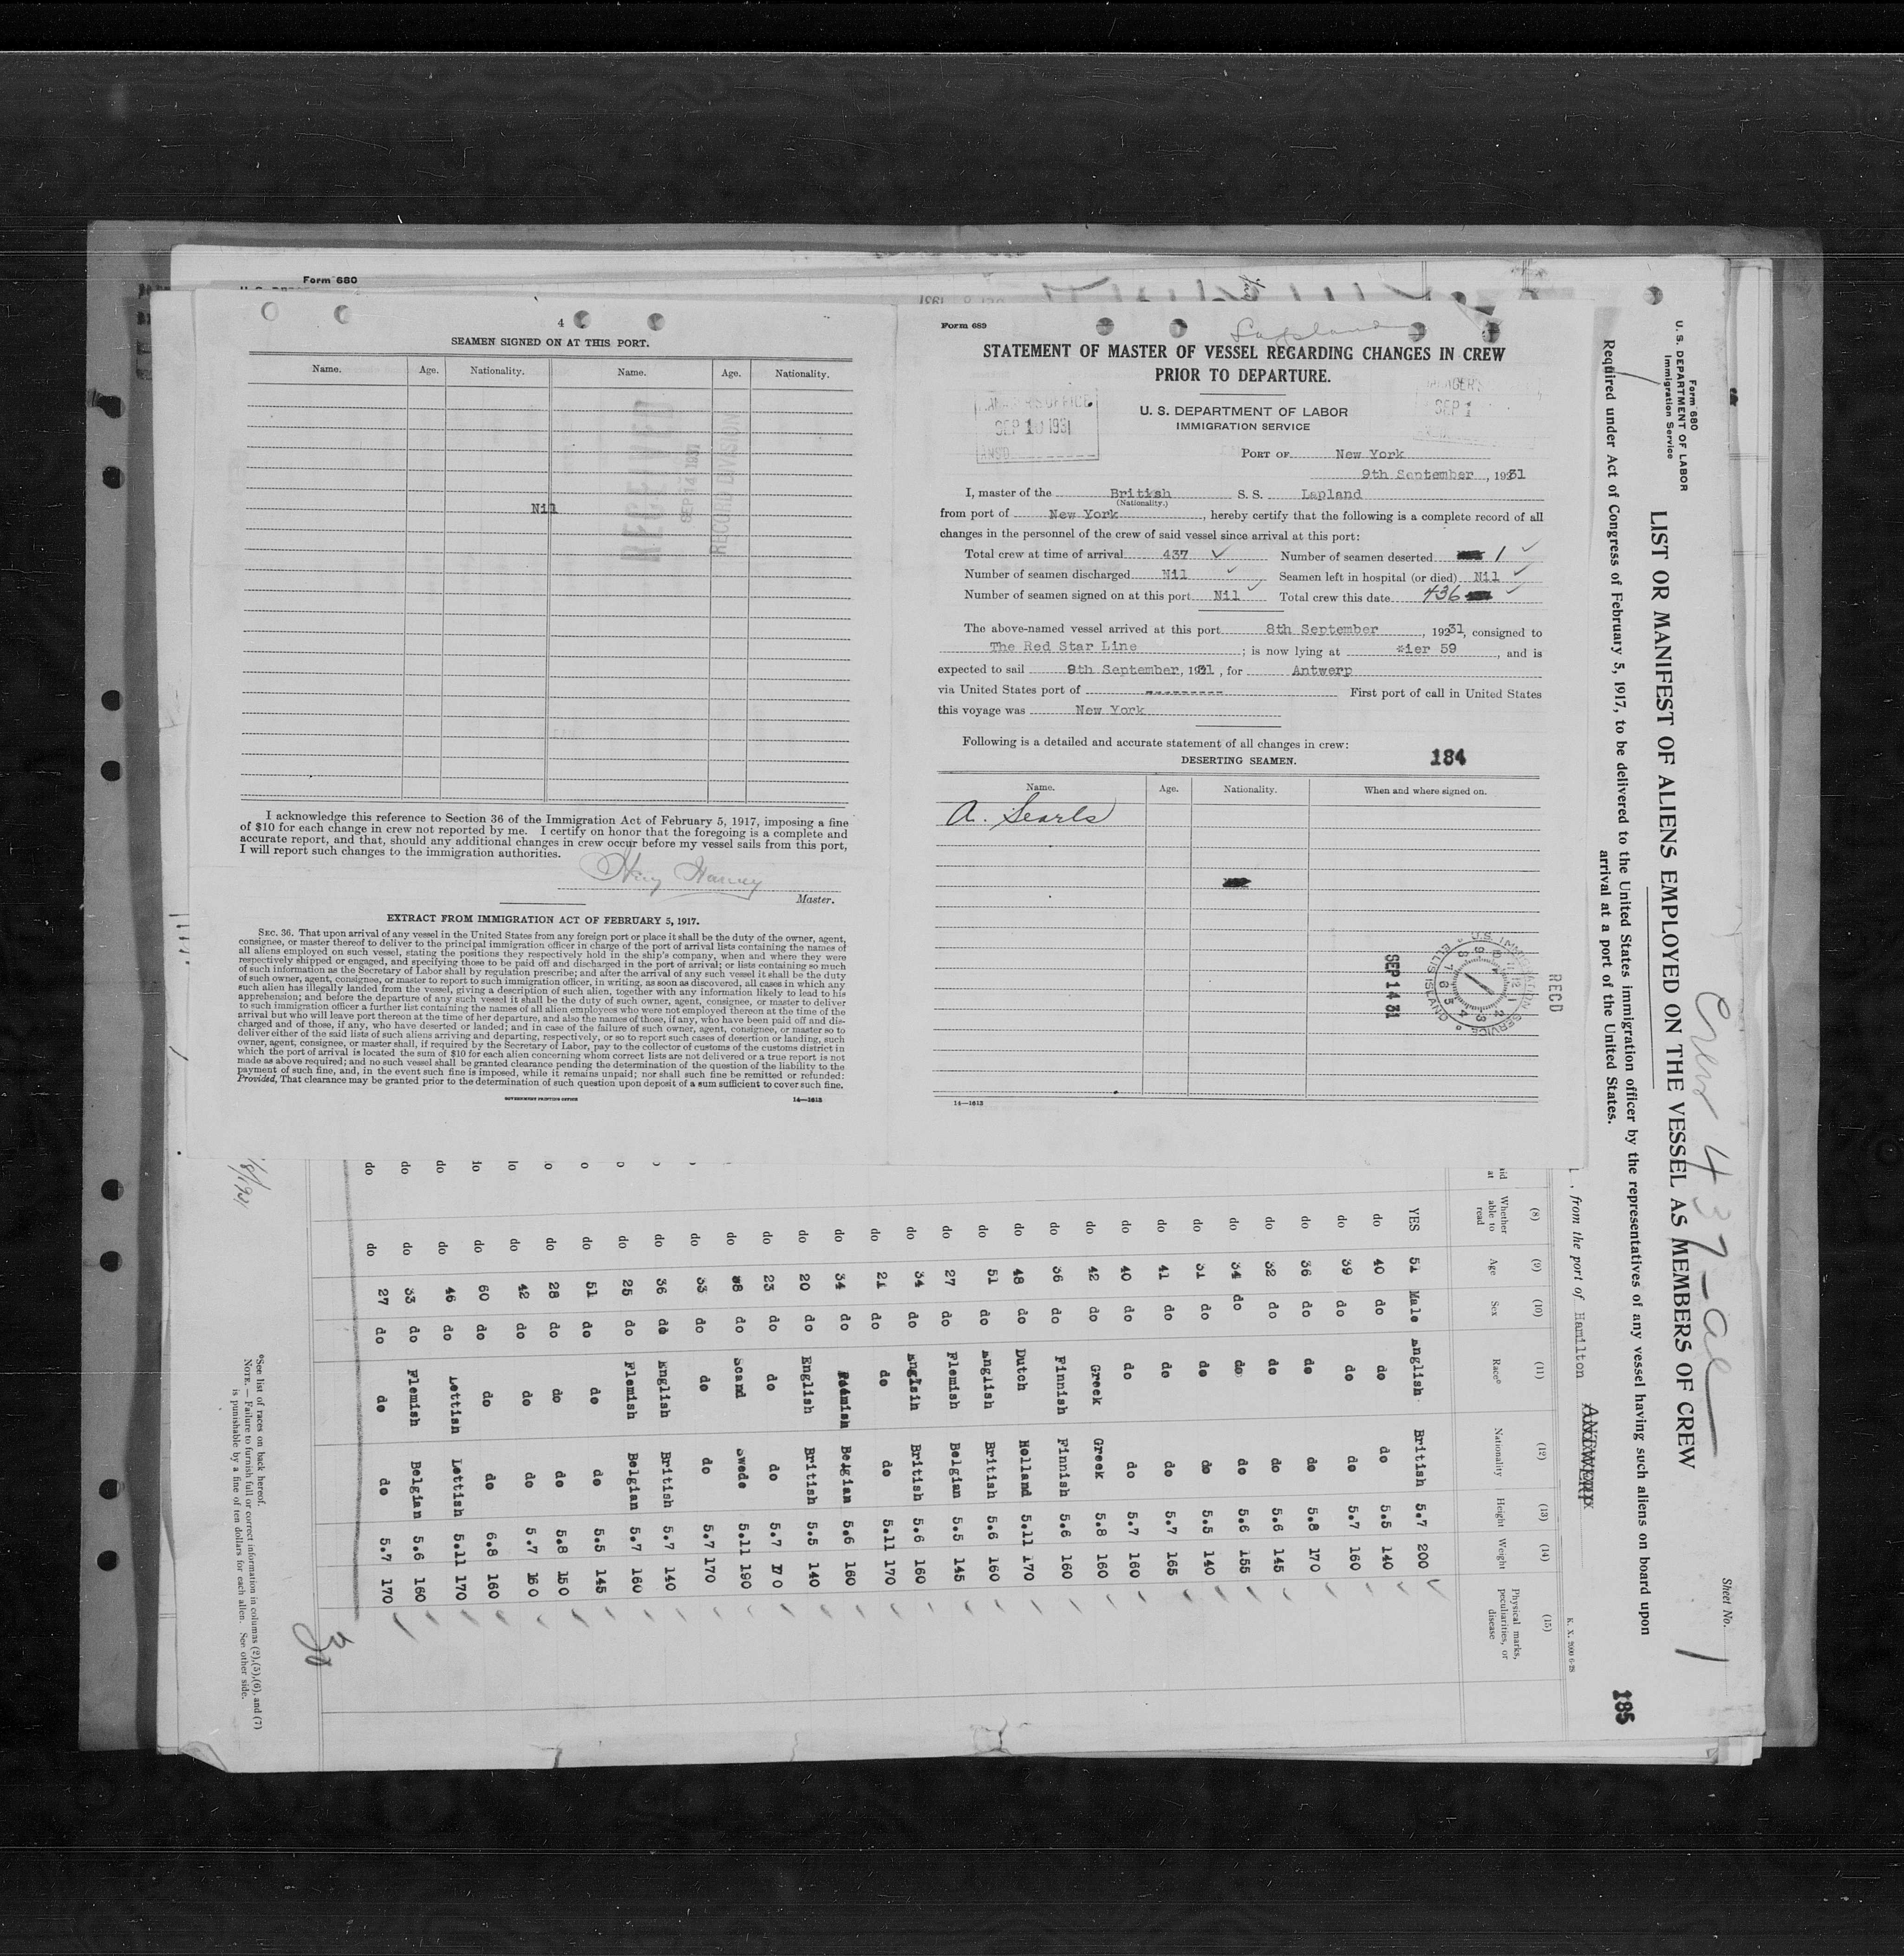 Form 680
4
SEAMEN SIGNED ON AT THIS PORT.
Name. Age. Nationality. Name. Age. Nationality.
Nil
RECEIVED
SEP 14 1931
RECORD DIVISION
I acknowledge this reference to Section 36 of the Immigration Act of February 5, 1917, imposing a fine
of $10 for each change in crew not reported by me. I certify on honor that the foregoing is a complete and
accurate report, and that, should any additional changes in crew occur before my vessel sails from this port,
I will report such changes to the immigration authorities.
Harvey
Master.
EXTRACT FROM IMMIGRATION ACT OF FEBRUARY 5, 1917.
SEC. 36. That upon arrival of any vessel in the United States from any foreign port or place it shall be the duty of the owner, agent,
consignee, or master thereof to deliver to the principal immigration officer in charge of the port of arrival lists containing the names of
all aliens employed on such vessel, stating the positions they respectively hold in the ship's company, when and where they were
respectively shipped or engaged, and specifying those to be paid off and discharged in the port of arrival; or lists containing so much
of such information as the Secretary of Labor shall by regulation prescribe; and after the arrival of any such vessel it shall be the duty
of such owner, agent, consignee, or master to report to such immigration officer, in writing, as soon as discovered, all cases in which any
such alien has illegally landed from the vessel, giving a description of such alien, together with any information likely to lead to his
apprehension; and before the departure of any such vessel it shall be the duty of such owner, agent, consignee, or master to deliver
to such immigration officer a further list containing the names of all alien employees who were not employed thereon at the time of the
arrival but who will leave port thereon at the time of her departure, and also the names of those, if any, who have been paid off and dis-
charged and of those, if any, who have deserted or landed; and in case of the failure of such owner, agent, consignee, or master so to
deliver either of the said lists of such aliens arriving and departing, respectively, or so to report such cases of desertion or landing, such
owner, agent, consignee, or master shall, if required by the Secretary of Labor, pay to the collector of customs of the customs district in
which the port of arrival is located the sum of $10 for each alien concerning whom correct lists are not delivered or a true report is not
made as above required; and no such vessel shall be granted clearance pending the determination of the question of the liability to the
payment of such fine, and, in the event such fine is imposed, while it remains unpaid; nor shall such fine be remitted or refunded:
Provided, That clearance may be granted prior to the determination of such question upon deposit of a sum sufficient to cover such fine.
GOVERNMENT PRINTING OFFICE 14—1613
Form 689
Lapland
STATEMENT OF MASTER OF VESSEL REGARDING CHANGES IN CREW
PRIOR TO DEPARTURE.
SEP 10 1931
SEP 1
U. S. DEPARTMENT OF LABOR
IMMIGRATION SERVICE
PORT OF New York
9th September, 1931
I, master of the British S. S. Lapland
(Nationality.)
from port of New York, hereby certify that the following is a complete record of all
changes in the personnel of the crew of said vessel since arrival at this port:
Total crew at time of arrival 437 ✓ Number of seamen deserted 1 ✓
Number of seamen discharged Nil ✓ Seamen left in hospital (or died) Nil ✓
Number of seamen signed on at this port Nil ✓ Total crew this date 436 ✓
The above-named vessel arrived at this port 8th September, 1931, consigned to
The Red Star Line; is now lying at *ier 59, and is
expected to sail 9th September, 1931, for Antwerp
via United States port of --------- First port of call in United States
this voyage was New York
Following is a detailed and accurate statement of all changes in crew:
184
DESERTING SEAMEN.
Name. Age. Nationality. When and where signed on.
A. Searls
SEP 14 31
U.S. IMMIGRATION SERVICE ELLIS ISLAND
RECD
14—1613
Form 680
U. S. DEPARTMENT OF LABOR
Immigration Service
Crew 437-al
Sheet No. 1
LIST OR MANIFEST OF ALIENS EMPLOYED ON THE VESSEL AS MEMBERS OF CREW
Required under Act of Congress of February 5, 1917, to be delivered to the United States immigration officer by the representatives of any vessel having such aliens on board upon
arrival at a port of the United States.
185
, from the port of Hamilton ANTWERP
K. X. 2000 6-28
(8) (9) (10) (11) (12) (13) (14) (15)
Whether able to read Age Sex Race* Nationality Height Weight Physical marks, peculiarities, or disease
YES 51 Male English British 5.7 200
do 40 do do do 5.5 140
do 39 do do do 5.7 160
do 36 do do do 5.8 170
do 32 do do do 5.6 145
do 34 do do do 5.6 155
do 31 do do do 5.5 140
do 41 do do do 5.7 165
do 40 do do do 5.7 160
do 42 do Greek Greek 5.8 160
do 36 do Finnish Finnish 5.6 160
do 48 do Dutch Holland 5.11 170
do 51 do English British 5.6 160
do 27 do Flemish Belgian 5.5 145
do 34 do English British 5.6 160
do 21 do do do 5.11 170
do 34 do Flemish Belgian 5.6 160
do 20 do English British 5.5 140
do 23 do do do 5.7 170
do 38 do Scand Swede 5.11 190
do 33 do do do 5.7 170
do 36 do English British 5.7 140
do 25 do Flemish Belgian 5.7 160
do 51 do do do 5.5 145
do 28 do do do 5.8 150
do 42 do do do 5.7 160
do 60 do do do 6.8 160
do 46 do Lettish Lettish 5.11 170
do 33 do Flemish Belgian 5.6 160
do 27 do do do 5.7 170
*See list of races on back hereof.
NOTE.—Failure to furnish full or correct information in columns (2),(5),(6), and (7)
is punishable by a fine of ten dollars for each alien. See other side.